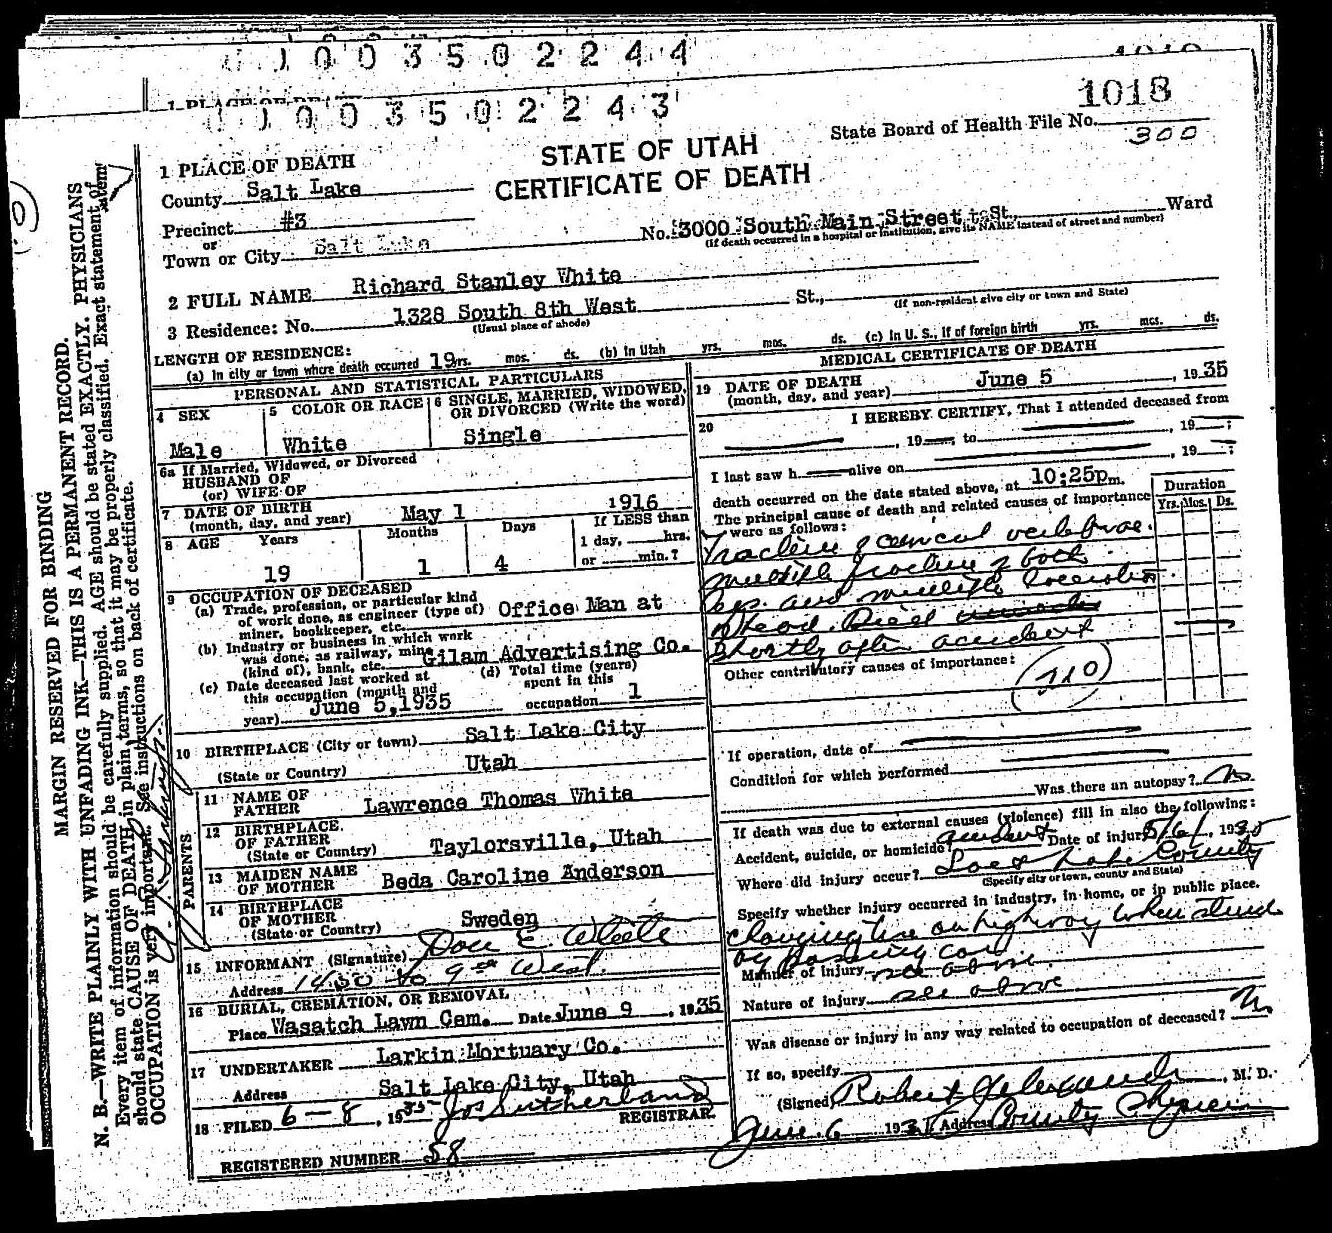 1 0 0 3 5 0 2 2 4 4
1 0 0 3 5 0 2 2 4 3
1018
State Board of Health File No.
300
STATE OF UTAH
CERTIFICATE OF DEATH
1 PLACE OF DEATH
County Salt Lake
Precinct #3
or
Town or City Salt Lake
No. 3000 South Main Street St. Ward
(If death occurred in a hospital or institution, give its NAME instead of street and number)
2 FULL NAME Richard Stanley White
3 Residence: No. 1328 South 8th West St.,
(Usual place of abode) (If non-resident give city or town and State)
LENGTH OF RESIDENCE:
(a) In city or town where death occurred 19 yrs. mos. ds. (b) In Utah yrs. mos. ds. (c) In U. S., if of foreign birth yrs. mos. ds.
PERSONAL AND STATISTICAL PARTICULARS
4 SEX Male
5 COLOR OR RACE White
6 SINGLE, MARRIED, WIDOWED, OR DIVORCED (Write the word) Single
6a If Married, Widowed, or Divorced
HUSBAND OF
(or) WIFE OF
7 DATE OF BIRTH
(month, day, and year) May 1 1916
8 AGE Years Months Days If LESS than
1 day, hrs.
or min.?
19 1 4
9 OCCUPATION OF DECEASED
(a) Trade, profession, or particular kind
of work done, as engineer (type of)
miner, bookkeeper, etc. Office Man at
(b) Industry or business in which work
was done, as railway, mine
(kind of), bank, etc. Gilam Advertising Co.
(c) Date deceased last worked at
this occupation (month and
year) June 5, 1935
(d) Total time (years)
spent in this
occupation 1
10 BIRTHPLACE (City or town) Salt Lake City
(State or Country) Utah
PARENTS
11 NAME OF
FATHER Lawrence Thomas White
12 BIRTHPLACE
OF FATHER
(State or Country) Taylorsville, Utah
13 MAIDEN NAME
OF MOTHER Beda Caroline Anderson
14 BIRTHPLACE
OF MOTHER
(State or Country) Sweden
15 INFORMANT (Signature) Don E. White
Address 9th West.
16 BURIAL, CREMATION, OR REMOVAL
Place Wasatch Lawn Cem. Date June 9, 1935
17 UNDERTAKER Larkin Mortuary Co.
Address Salt Lake City, Utah
18 FILED 6-8, 1935 Jos Sutherland
REGISTRAR.
REGISTERED NUMBER 58
MEDICAL CERTIFICATE OF DEATH
19 DATE OF DEATH
(month, day, and year) June 5, 1935
20 I HEREBY CERTIFY, That I attended deceased from
, 19 to , 19 ;
I last saw h alive on , 19 ;
death occurred on the date stated above, at 10:25p m.
The principal cause of death and related causes of importance
were as follows:
Duration
Yrs. Mos. Ds.
Fracture of cervical vertebrae.
multiple fracture of both
legs and multiple laceration
of head. Died
shortly after accident
Other contributory causes of importance:
210
If operation, date of
Condition for which performed
Was there an autopsy? No
If death was due to external causes (violence) fill in also the following:
Accident, suicide, or homicide? accident Date of injury 5/6/, 1935
Where did injury occur? Salt Lake County
(Specify city or town, county and State)
Specify whether injury occurred in industry, in home, or in public place.
changing tire on highway when struck
by passing car
Manner of injury see above
Nature of injury see above
Was disease or injury in any way related to occupation of deceased? No
If so, specify
(Signed) Robert Alexander, M. D.
June 6 193 Address County Physician
MARGIN RESERVED FOR BINDING
N. B.—WRITE PLAINLY WITH UNFADING INK—THIS IS A PERMANENT RECORD.
Every item of information should be carefully supplied. AGE should be stated EXACTLY. PHYSICIANS
should state CAUSE OF DEATH in plain terms, so that it may be properly classified. Exact statement of
OCCUPATION is very important. See instructions on back of certificate.